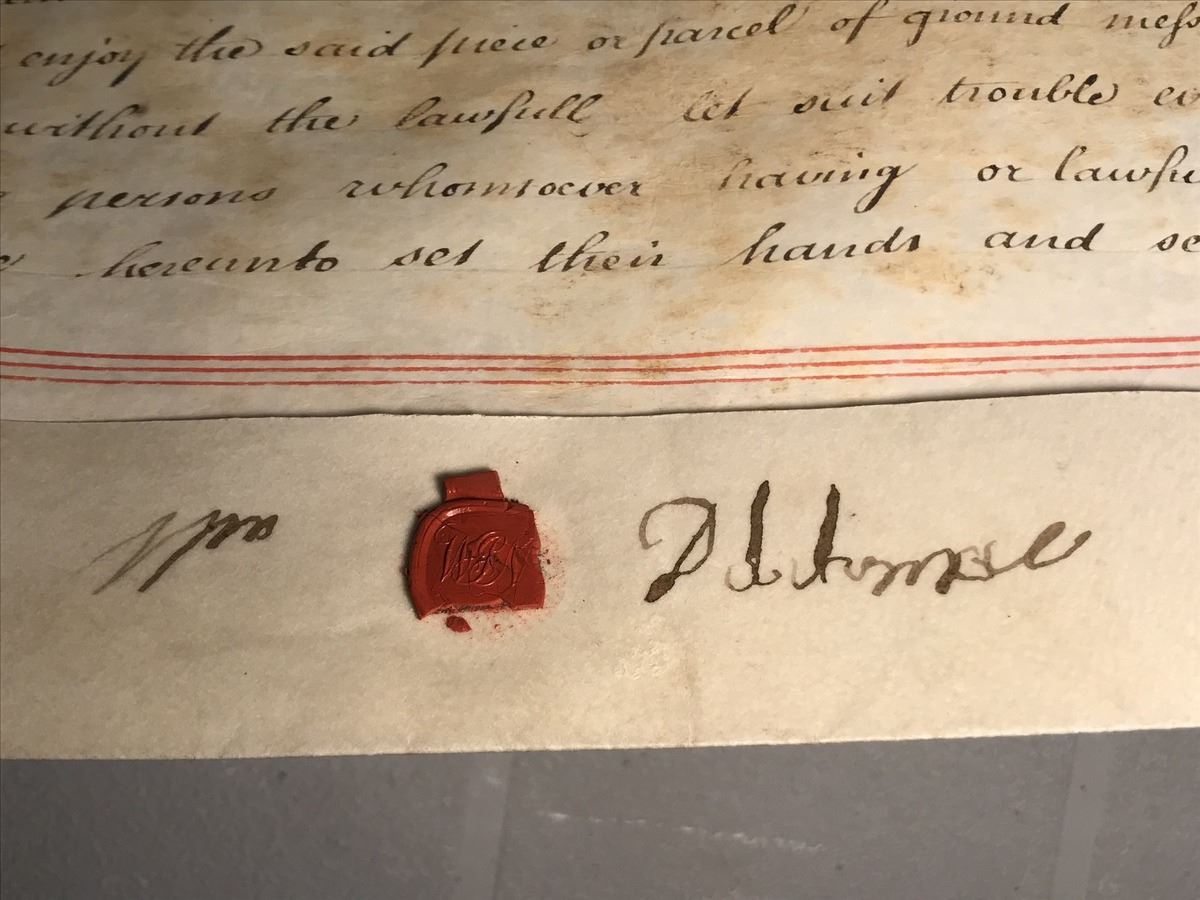 enjoy the said piece or parcel of ground mess
without the lawfull let suit trouble ev
persons whomsoever having or lawfu
hereunto set their hands and se
Wm